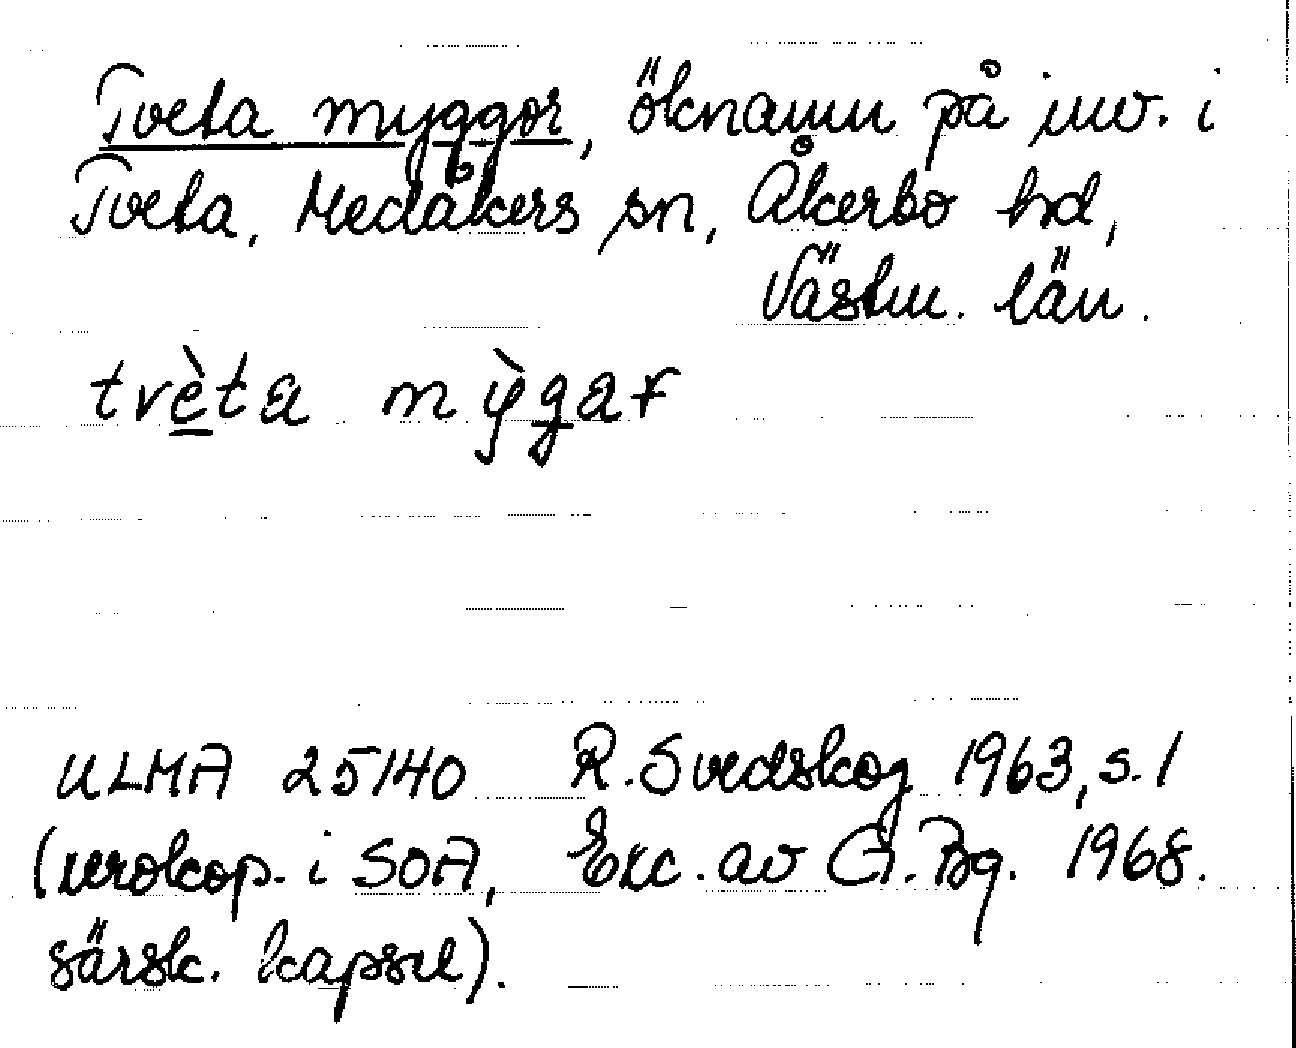 Tveta myggor, öknamn på inv. i
Tveta, Medåkers sn, Åkerbo hd,
Västm. län.
tvèta mỳgar
ULMA 25140 R. Svedskog 1963, s. 1
(xerokop. i SOA, Exc. av G. Bg. 1968.
särsk. kapsel).